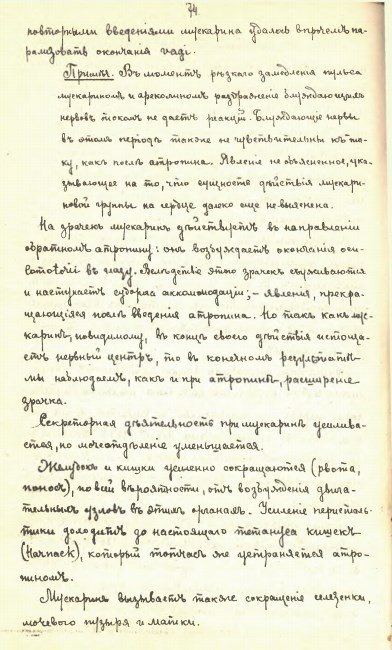 74.
повторными введенiями мускарина удалось впрочемъ па-
рализовать окончанiя vagi.
Примѣч. Въ моментъ рѣзкаго замедленiя пульса
мускариномъ и ареколиномъ раздраженiе блуждающихъ
нервовъ токомъ не даетъ реакцiи. Блуждающiе нервы
въ этомъ перiодѣ также не чувствительны къ то-
ку, какъ послѣ атропина. Явленiе не объясненное, ука-
зывающее на то, что сущность дѣйствiя мускари-
новой группы на сердце далеко еще не выяснена.
На зрачекъ мускаринъ дѣйствуетъ въ направленiи
обратномъ атропину: онъ возбуждаетъ окончанiя ocu-
lomotorii въ глазу. Вслѣдствiе этого зрачекъ съуживается
и наступаетъ судорога аккомодацiи; – явленiя, прекра-
щающiяся послѣ введенiя атропина. Но такъ какъ му-
скаринъ, повидимому, въ концѣ своего дѣйствiя истоща-
етъ нервный центръ, то въ конечномъ результатѣ
мы наблюдаемъ, какъ и при атропинѣ, расширенiе
зрачка.
Секреторная дѣятельность при мускаринѣ усилива-
ется, но мочеотдѣленiе уменьшается.
Желудокъ и кишки усиленно сокращаются (рвота,
поносъ), по всей вѣроятности, отъ возбужденiя двига-
тельныхъ узловъ въ этихъ органахъ. Усиленiе перисталь-
тики доходитъ до настоящаго тетануса кишекъ
(Harnack), который тотчасъ же устраняется атро-
пиномъ.
Мускаринъ вызываетъ также сокращенiе селезенки,
мочевого пузыря и матки.